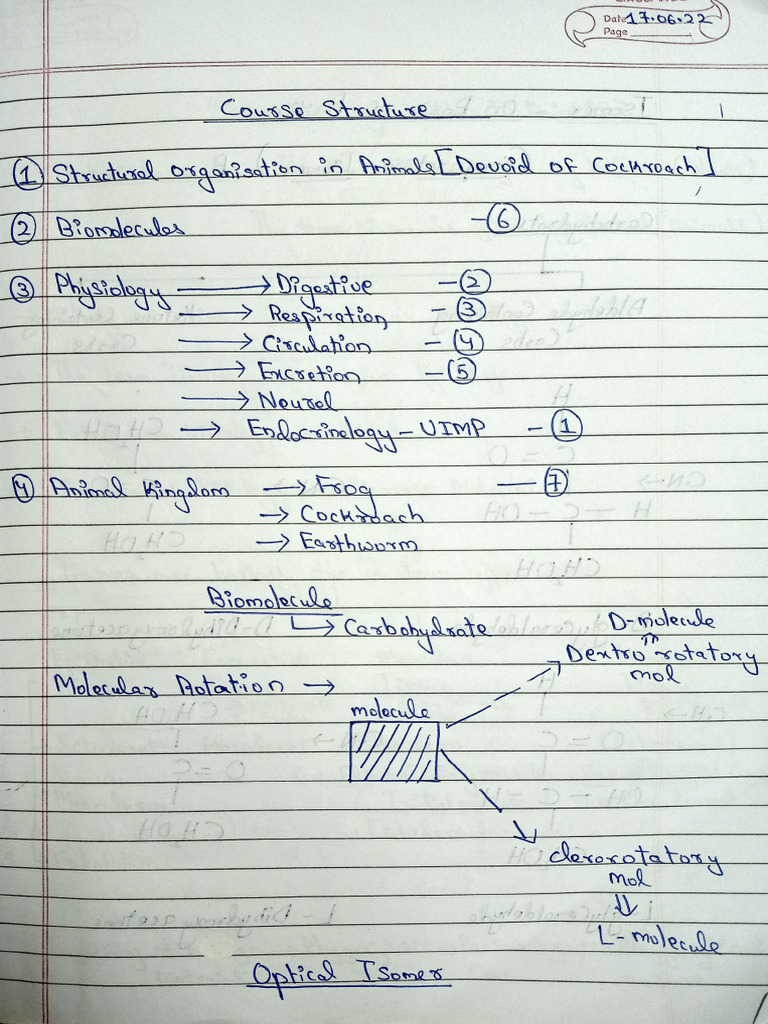 Date 17.06.22
Page
Course Structure
① Structural organisation in Animals [Devoid of Cockroach]
② Biomolecules - ⑥
③ Physiology → Digestive - ②
→ Respiration - ③
→ Circulation - ④
→ Excretion - ⑤
→ Neural
→ Endocrinology - VIMP - ①
④ Animal Kingdom → Frog - ⑦
→ Cockroach
→ Earthworm
Biomolecule
↳ Carbohydrate
D-molecule
⇑
Dextro rotatory
mol
Molecular Rotation →
molecule
clerorotatory
mol
⇓
L-molecule
Optical Isomer